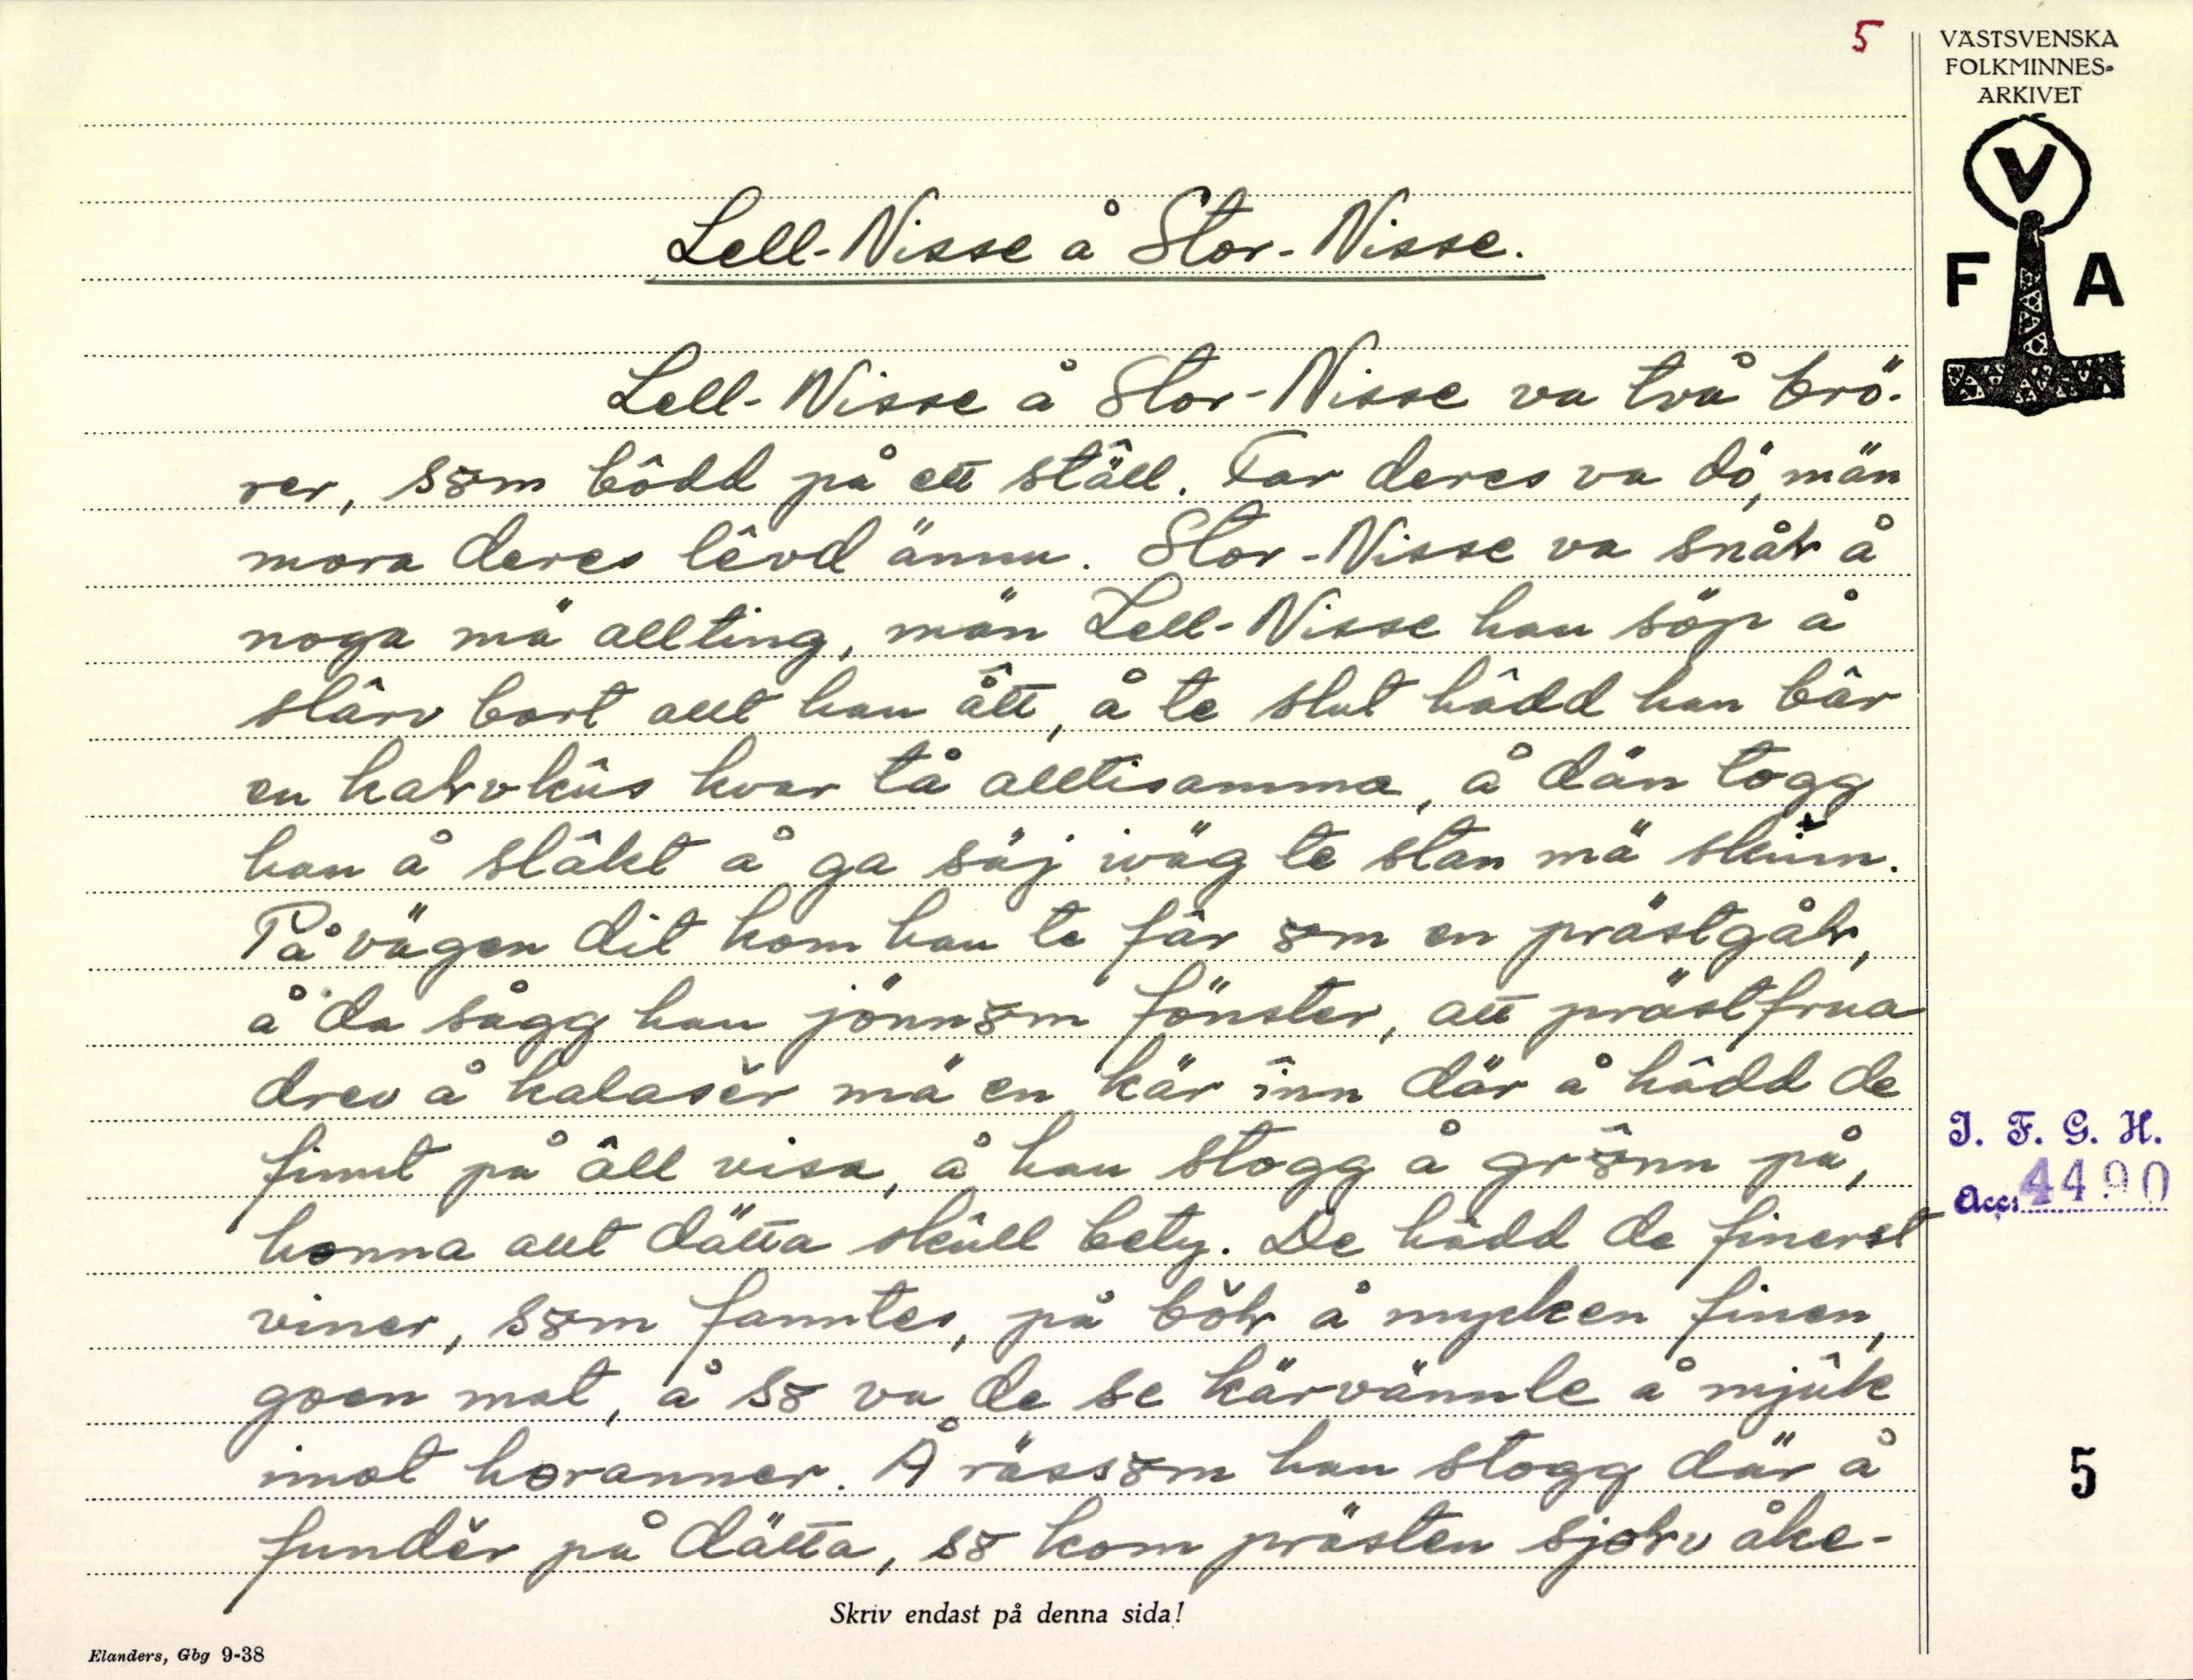 5
VÄSTSVENSKA
FOLKMINNES-
ARKIVET
V
F A
Lell-Nisse å Stor-Nisse.
Lell-Nisse å Stor-Nisse va två brö-
rer, s8m bôdd på ett ställ. Far deres va dö, män
mora deres lêvd ännu. Stor-Nisse va snåɫ å
noga mä allting, män Lell-Nisse han söp å
slârv bort allt han âtt, å te slut hâdd han bâr
en kaɫvkûs kvar tå alltisamma, å dän togg
han å slâkt å ga säj iväg te stan mä skinn.
På vägen dit kom han te fâr 8m en prästgåɫ,
å da sågg han jönn8m fönster, att prästfrua
drev å kalasêr mä en kär înn där å hâdd de
finnt på âll visa, å han stogg å gr8̂nn på,
hɵnna allt dätta skûll bety. De hâdd de finerst
viner, s8m fanntes, på bôɫ å mycken finen,
goen mat, å s8 va de se kärvännle å mjûk
imot hɵranner. Å räss8m han stogg där å
fundêr på dätta, s8 kom prästen sjɵɫv åke-
I. F. G. H.
Acc. 4490
5
Skriv endast på denna sida!
Elanders, Gbg 9-38